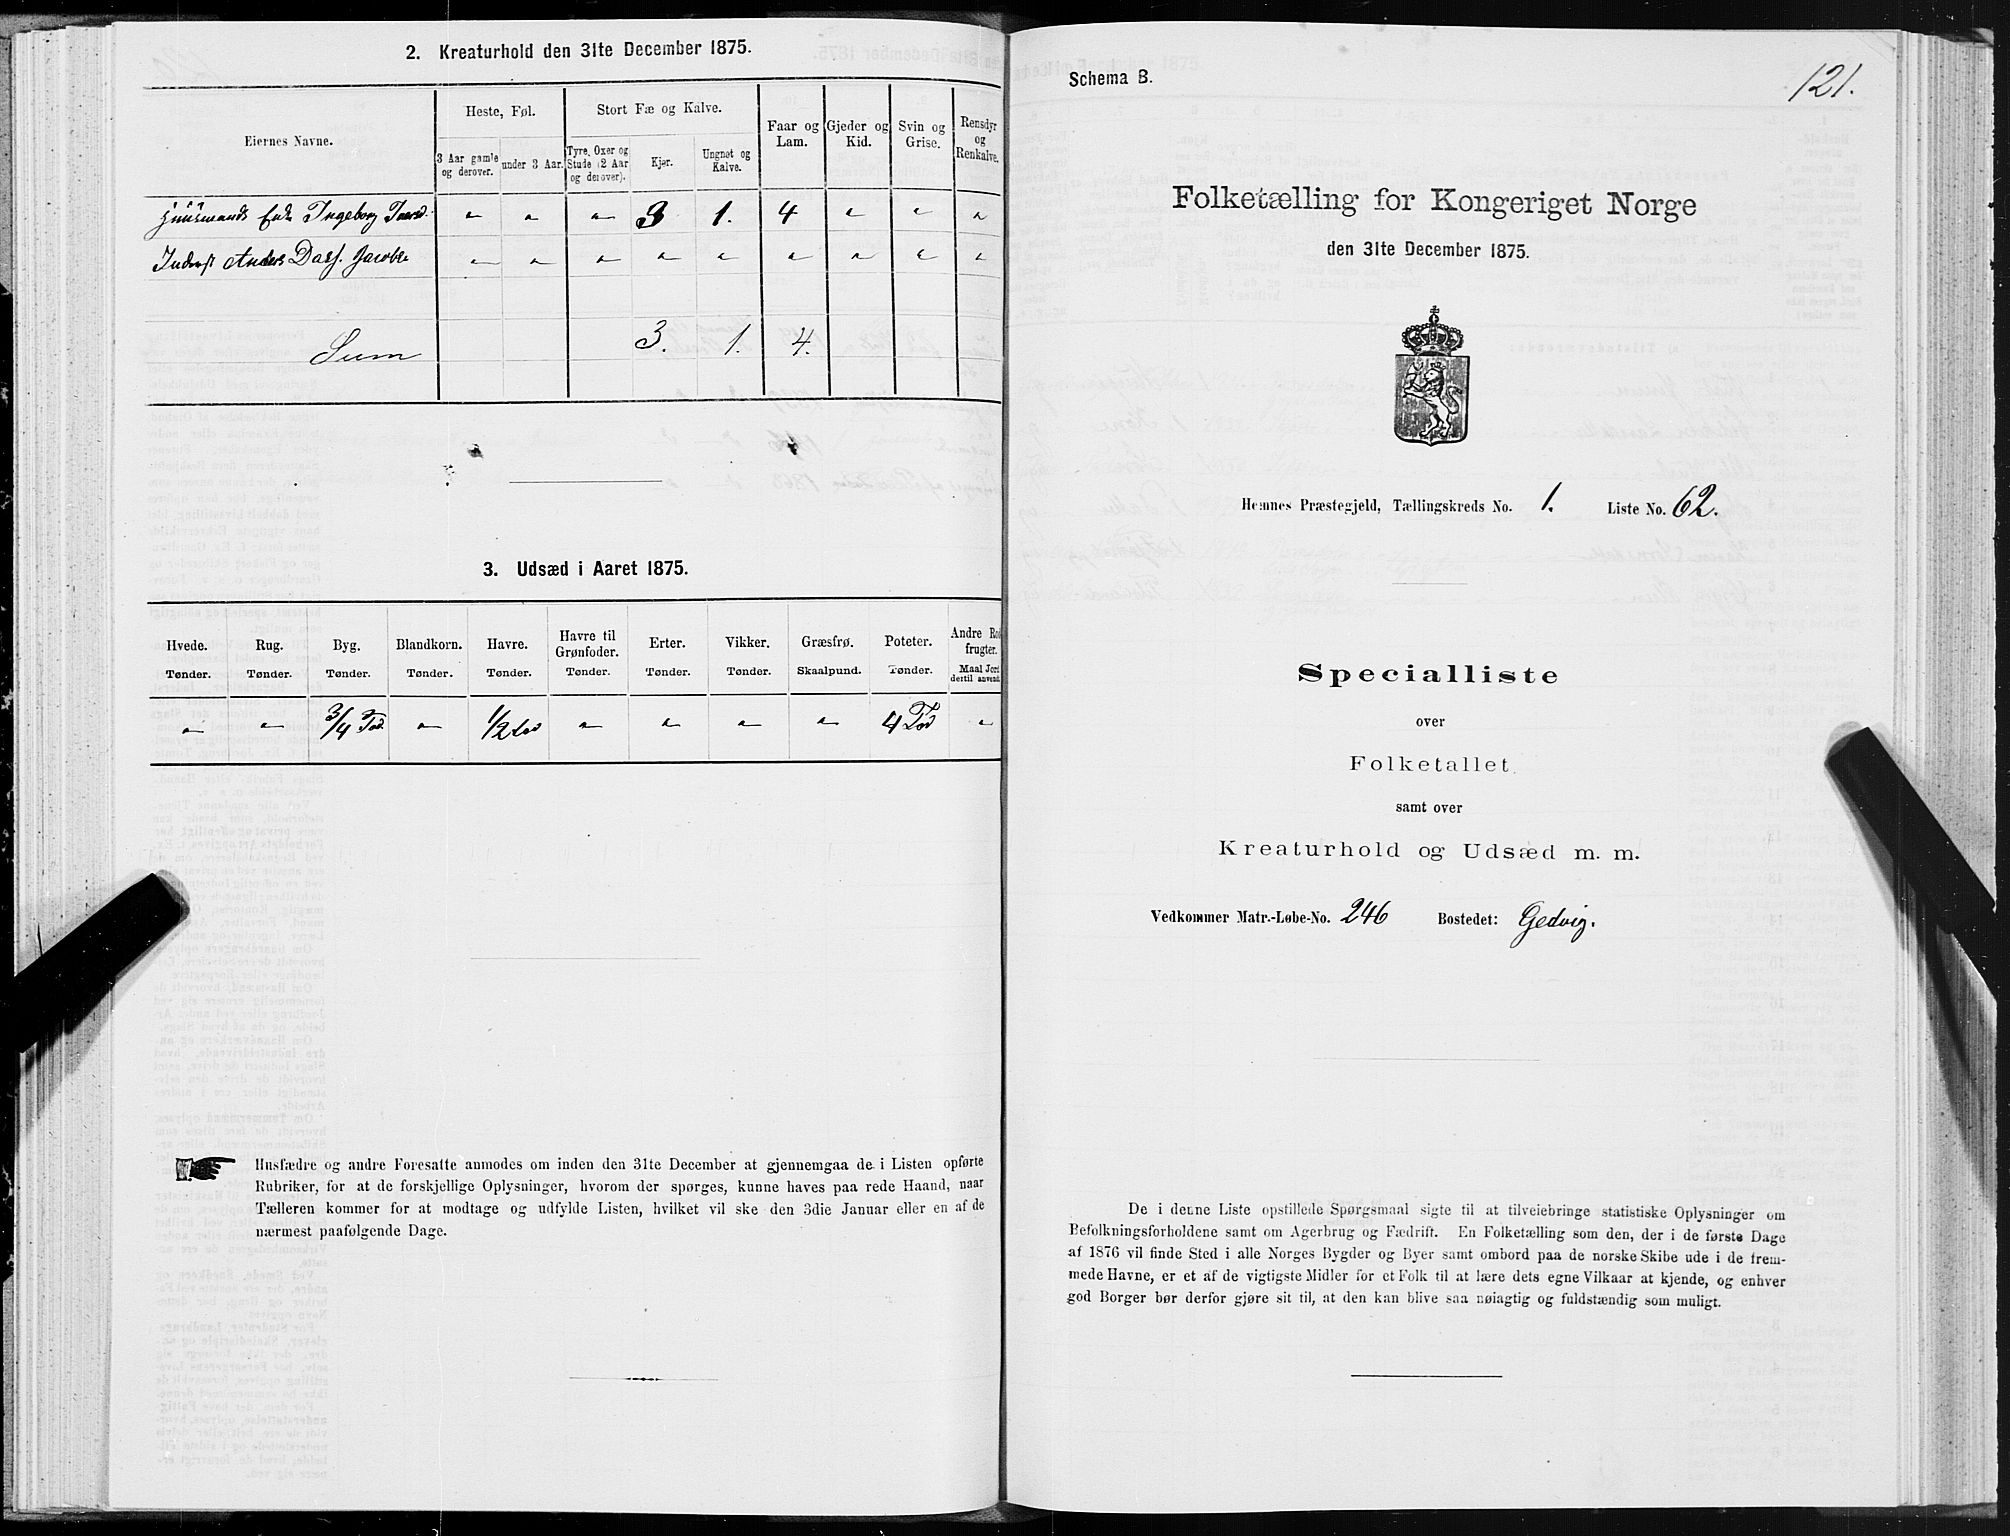 2. Kreaturhold den 31te December 1875.
Eiernes Navne.
Heste, Føl.
3 Aar gamle og derover.
under 3 Aar.
Stort Fæ og Kalve.
Tyre, Oxer og Stude (2 Aar og derover).
Kjør.
Ungnøt og Kalve.
Faar og Lam.
Gjeder og Kid.
Svin og Grise.
Rensdyr og Renkalve.
Huusmands Enke Ingeborg " " " 3 1. 4 " " "
Inderst Anders Dass Jacobs. " " " " " " " " "
Sum 3. 1. 4.
3. Udsæd i Aaret 1875.
Hvede. Rug. Byg. Blandkorn. Havre. Havre til Grønfoder. Erter. Vikker. Græsfrø. Poteter. Andre Rodfrugter.
Tønder. Tønder. Tønder. Tønder. Tønder. Tønder. Tønder. Tønder. Skaalpund. Tønder. Maal Jord dertil anvend.
" " 3/4 Td " 1/2 Td " " " " 4 Td "
Husfædre og andre Foresatte anmodes om inden den 31te December at gjennemgaa de i Listen opførte
Rubriker, for at de forskjellige Oplysninger, hvorom der spørges, kunne haves paa rede Haand, naar
Tælleren kommer for at modtage og udfylde Listen, hvilket vil ske den 3die Januar eller en af de
nærmest paafølgende Dage.
Schema B.
121.
Folketælling for Kongeriget Norge
den 31te December 1875.
Hemnes Præstegjeld, Tællingskreds No. 1. Liste No. 62.
Specialliste
over
Folketallet
samt over
Kreaturhold og Udsæd m. m.
Vedkommer Matr.-Løbe-No. 246 Bostedet: Gedvig.
De i denne Liste opstillede Spørgsmaal sigte til at tilveiebringe statistiske Oplysninger om
Befolkningsforholdene samt om Agerbrug og Fædrift. En Folketælling som den, der i de første Dage
af 1876 vil finde Sted i alle Norges Bygder og Byer samt ombord paa de norske Skibe ude i de frem-
mede Havne, er et af de vigtigste Midler for et Folk til at lære dets egne Vilkaar at kjende, og enhver
god Borger bør derfor gjøre sit til, at den kan blive saa nøiagtig og fuldstændig som muligt.